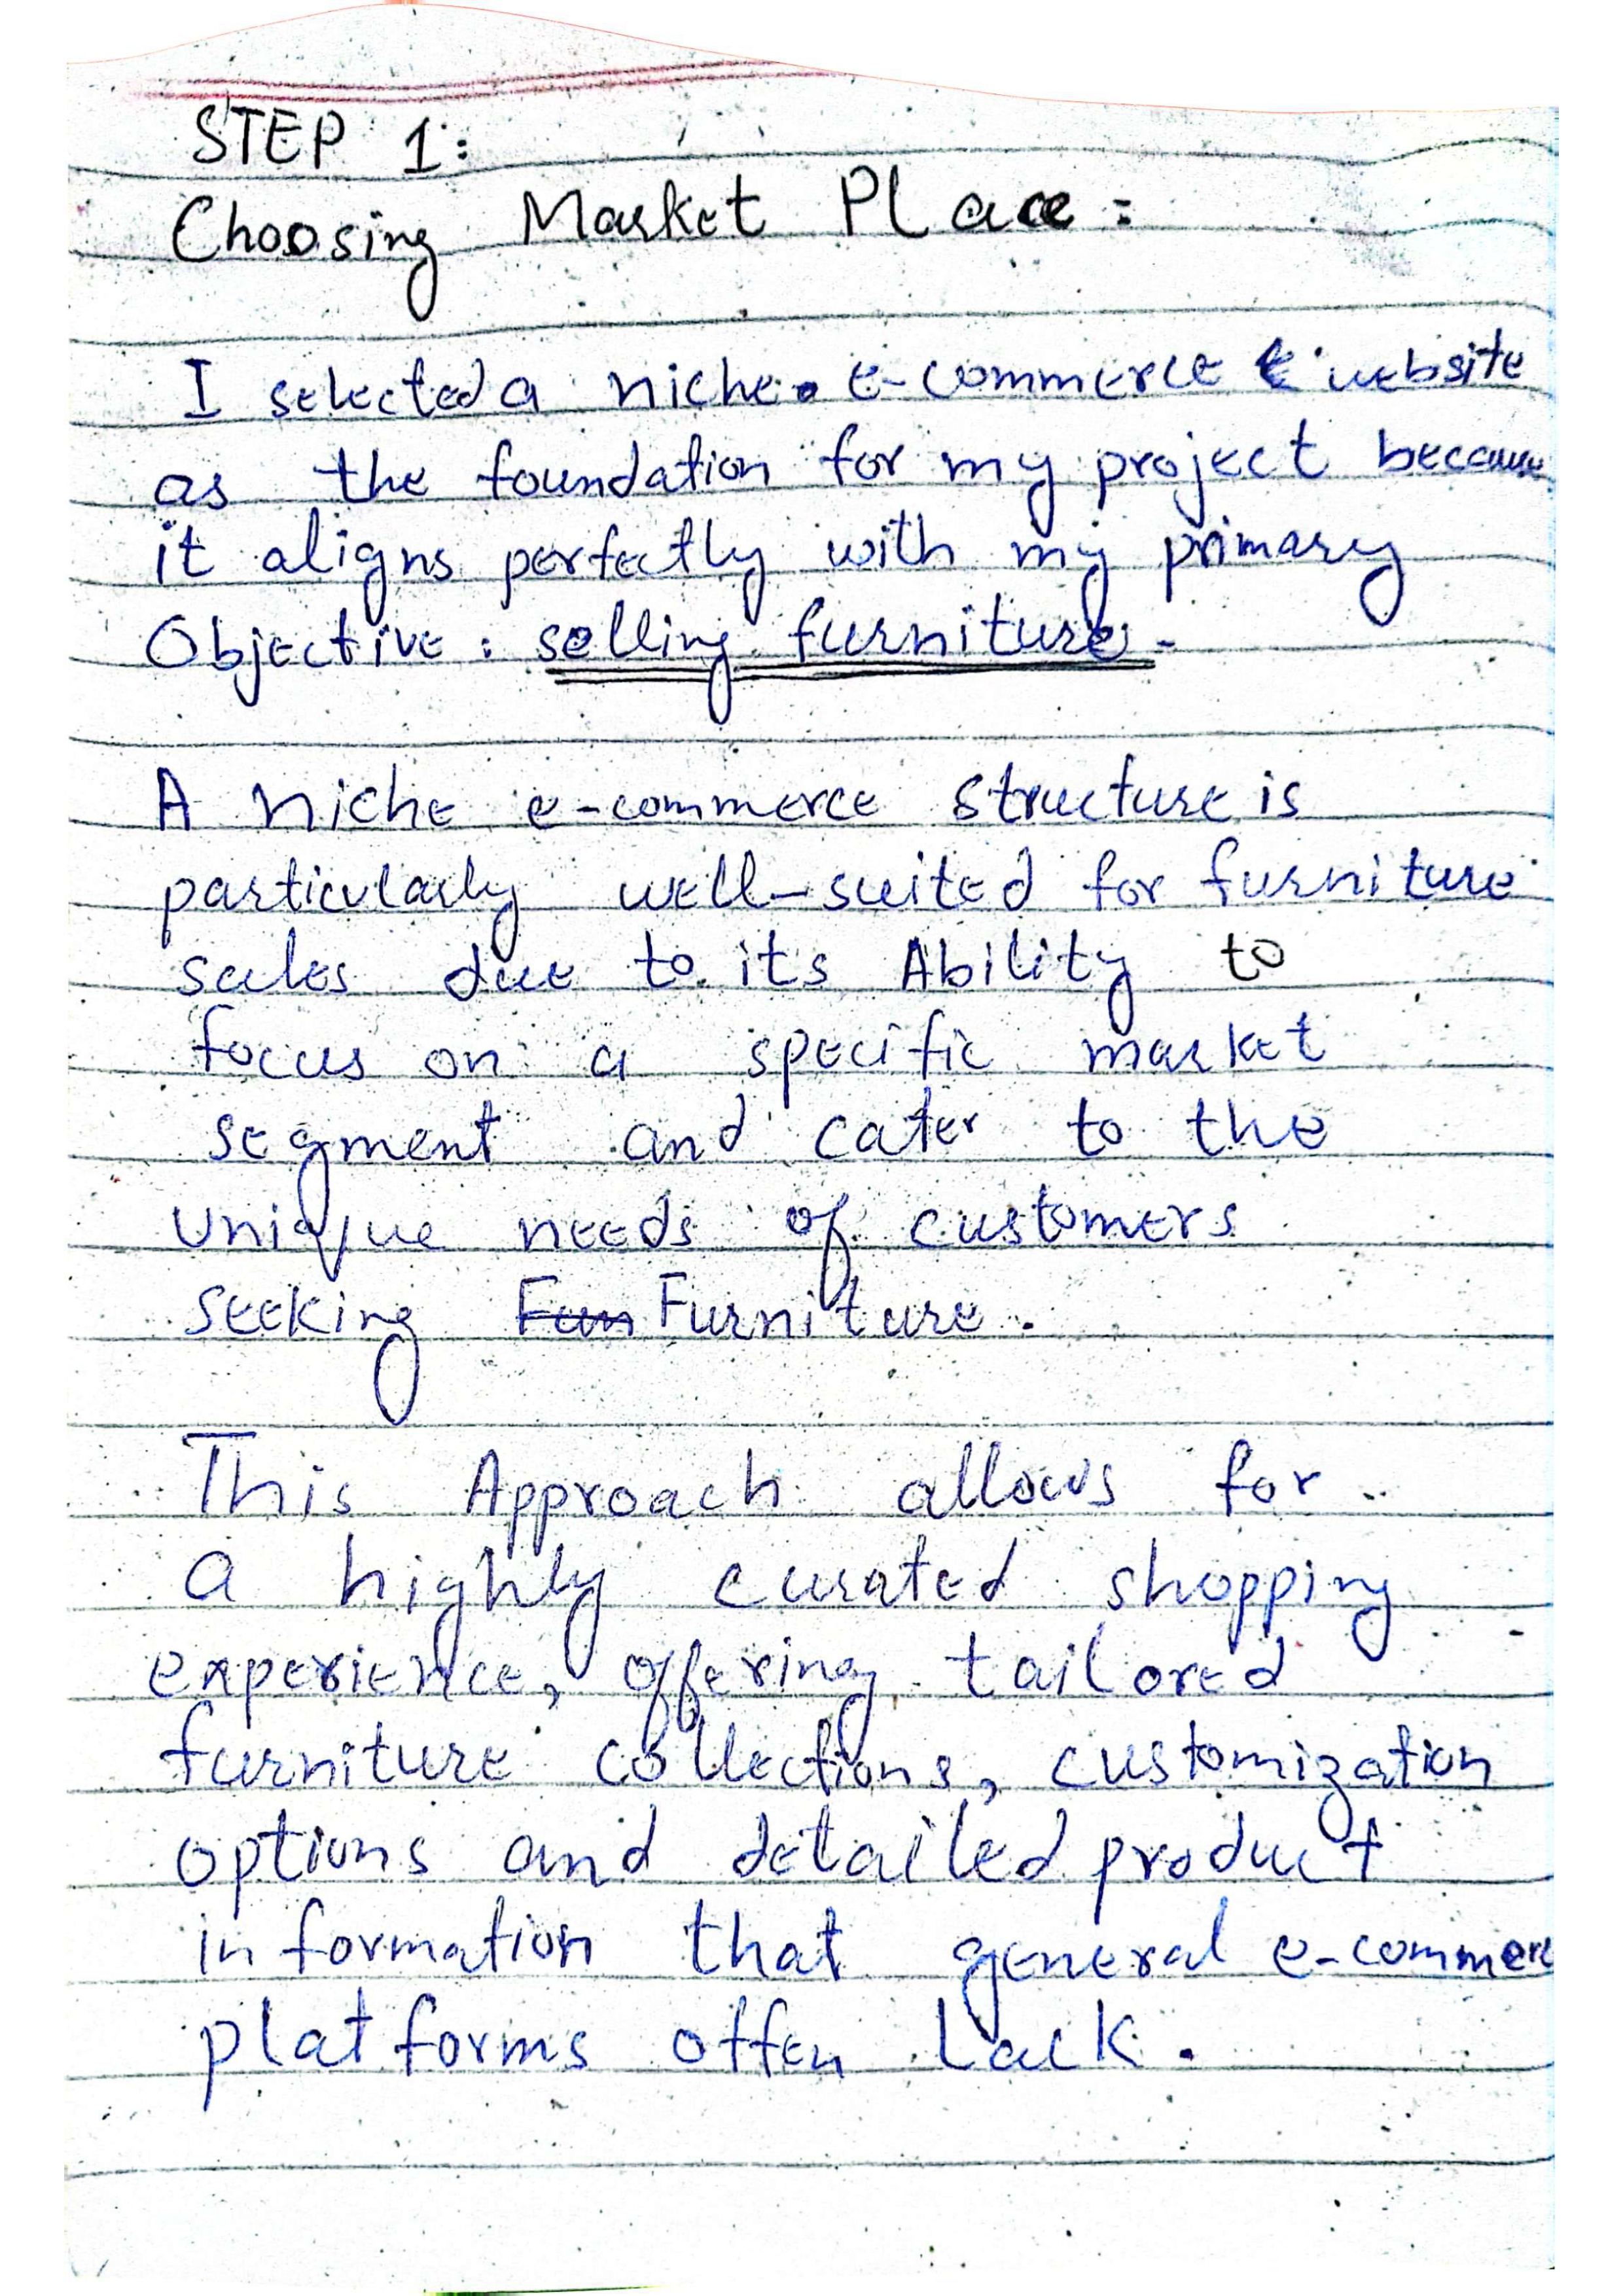 STEP 1:
Choosing Market Place:
I selected a niche e-commerce website
as the foundation for my project because
it aligns perfectly with my primary
Objective: selling furniture.
A niche e-commerce structure is
particularly well-suited for furniture
sales due to its Ability to
focus on a specific market
segment and cater to the
unique needs of customers
seeking Fun Furniture.
This Approach allows for
a highly curated shopping
experience, offering tailored
furniture collections, customization
options and detailed product
information that general e-commerce
platforms often Lack.